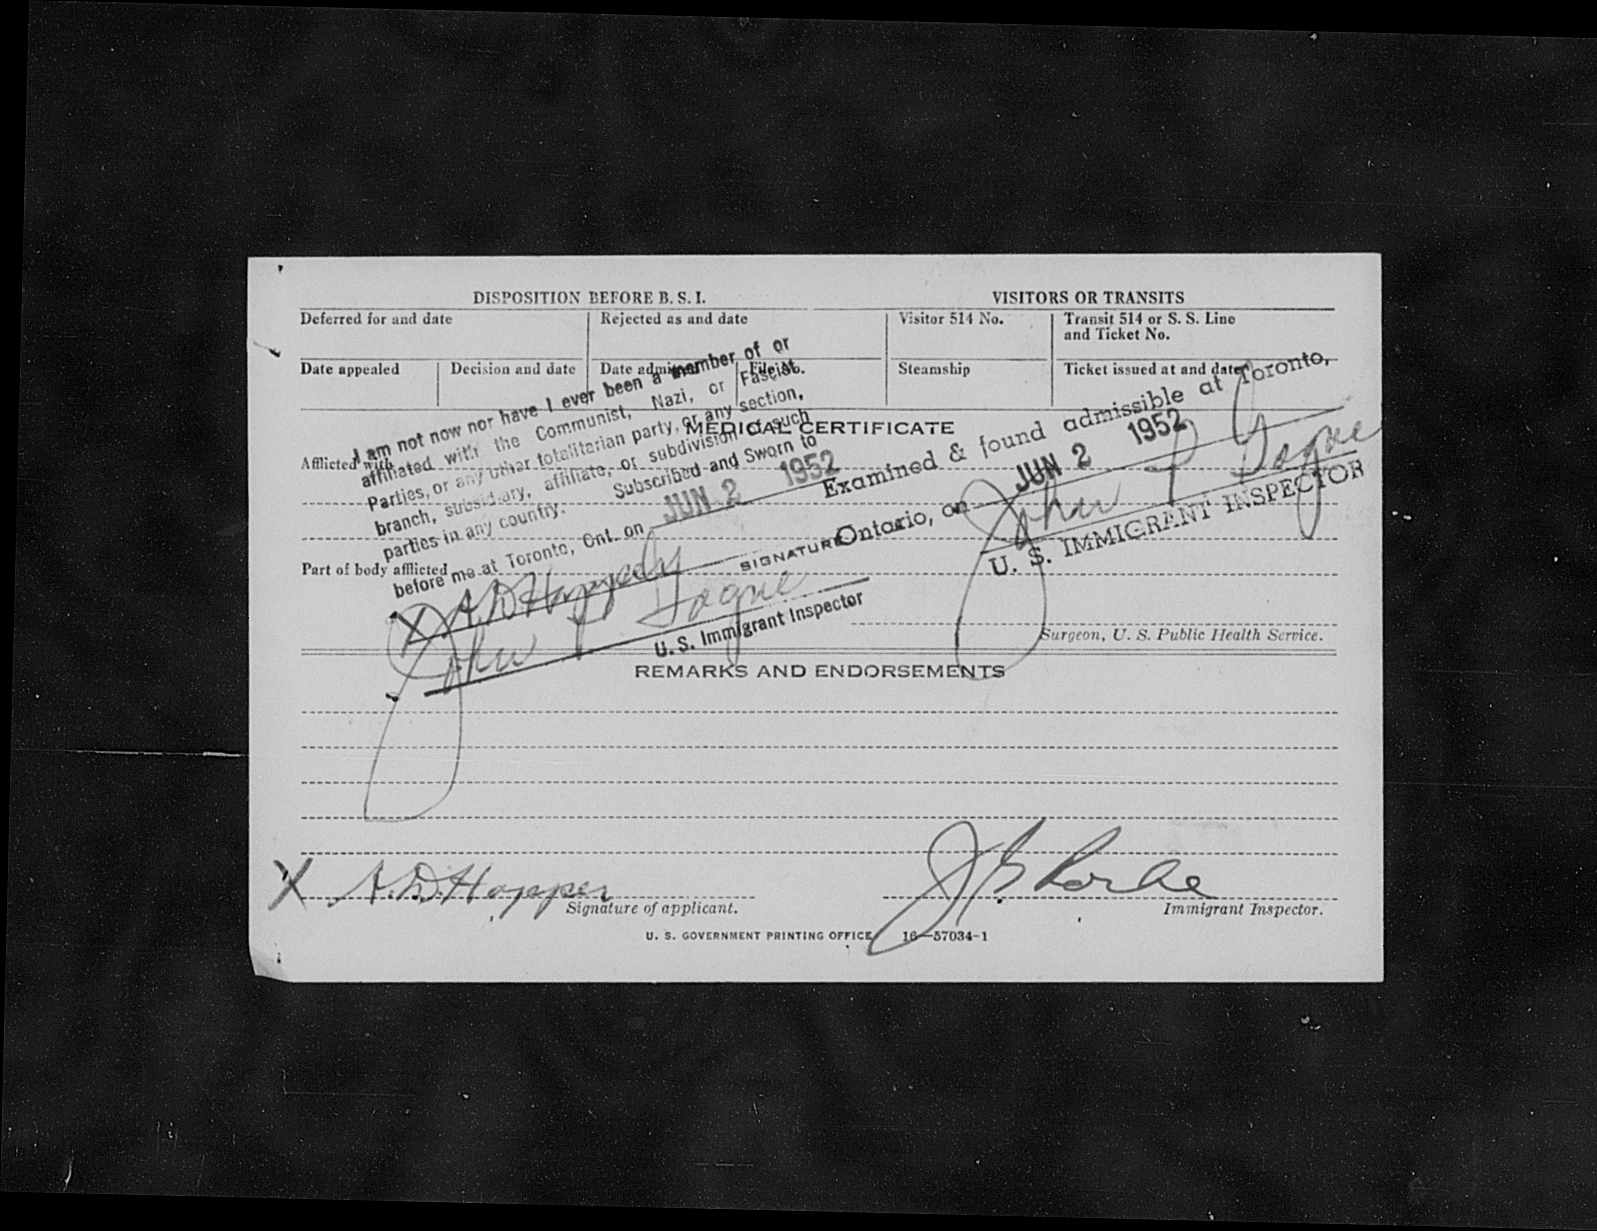 DISPOSITION BEFORE B. S. I.
VISITORS OR TRANSITS
Deferred for and date
Rejected as and date
Visitor 514 No.
Transit 514 or S. S. Line
and Ticket No.
Date appealed
Decision and date
Date admitted
File No.
Steamship
Ticket issued at and date
I am not now nor have I ever been a member of or
affiliated with the Communist, Nazi, or Fascist
Parties, or any other totalitarian party, or any section,
branch, subsidiary, affiliate, or subdivision of such
parties in any country. Subscribed and Sworn to
before me at Toronto, Ont. on JUN 2 1952
SIGNATURE
A. D. Hopper
John P
U. S. Immigrant Inspector
MEDICAL CERTIFICATE
Afflicted with
Part of body afflicted
Examined & found admissible at Toronto,
Ontario, on JUN 2 1952
John P
U. S. IMMIGRANT INSPECTOR
Surgeon, U. S. Public Health Service.
REMARKS AND ENDORSEMENTS
X A. D. Hopper
Signature of applicant.
Immigrant Inspector.
U. S. GOVERNMENT PRINTING OFFICE 16—57034-1